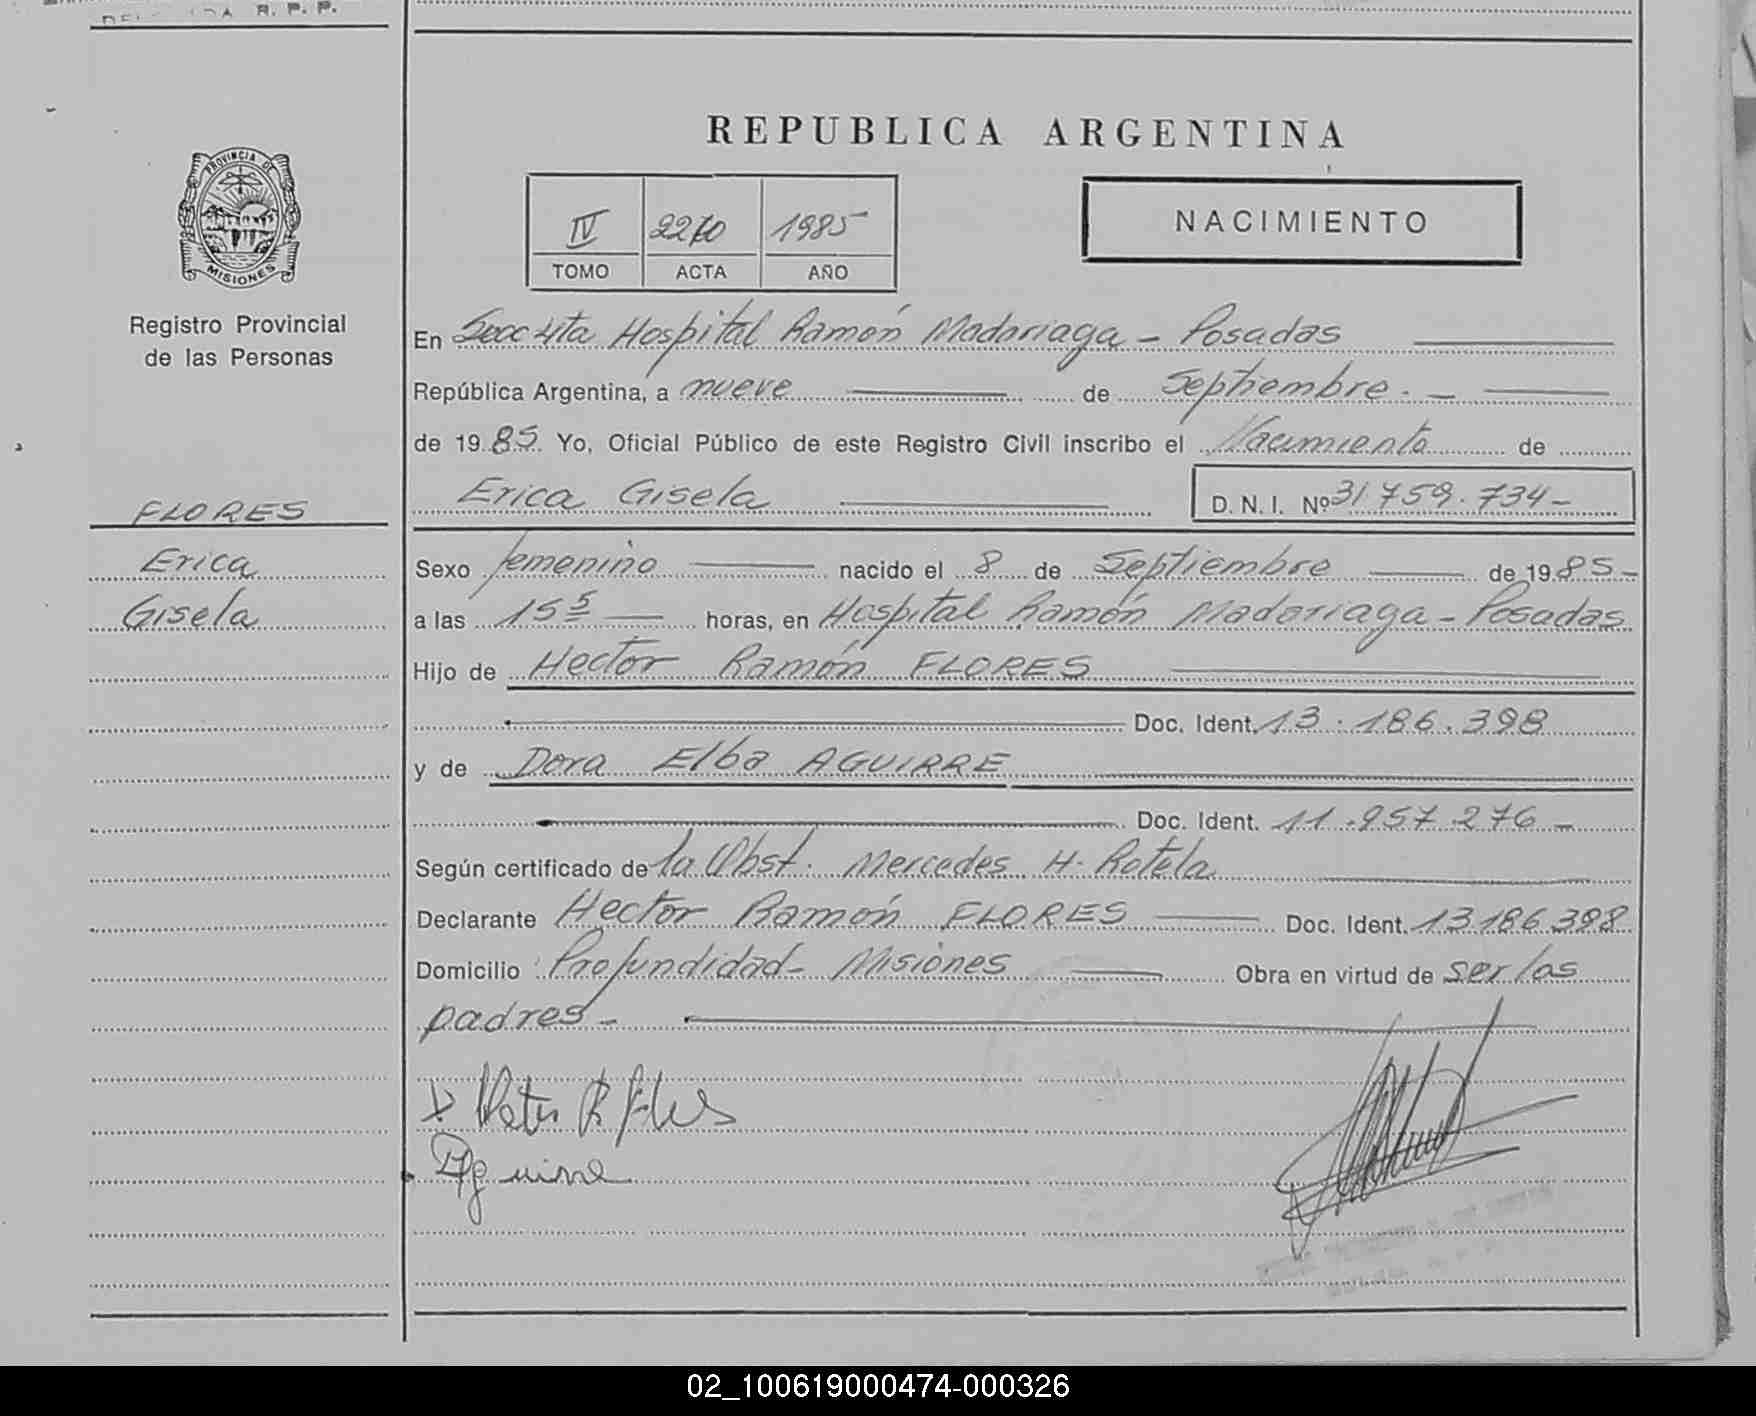 R. P. P.
REPUBLICA ARGENTINA
PROVINCIA DE
MISIONES
Registro Provincial
de las Personas
IV 1985
TOMO ACTA AÑO
NACIMIENTO
En Secc 4ta Hospital Ramón Madariaga - Posadas
República Argentina, a nueve de Septiembre. -
de 1985. Yo, Oficial Público de este Registro Civil inscribo el Nacimiento de
Erica Gisela D. N. I. Nº 31.759.734-
FLORES
Erica
Gisela
Sexo femenino nacido el 8 de Septiembre de 1985-
a las 15 5 horas, en Hospital Ramón Madariaga - Posadas
Hijo de Hector Ramón FLORES
Doc. Ident. 13.186.398
y de Dora Elba AGUIRRE
Doc. Ident. 11.957.276-
Según certificado de la Obst. Mercedes H. Rotela
Declarante Hector Ramón FLORES Doc. Ident. 13186398
Domicilio Profundidad - Misiones Obra en virtud de ser los
padres -
02_100619000474-000326